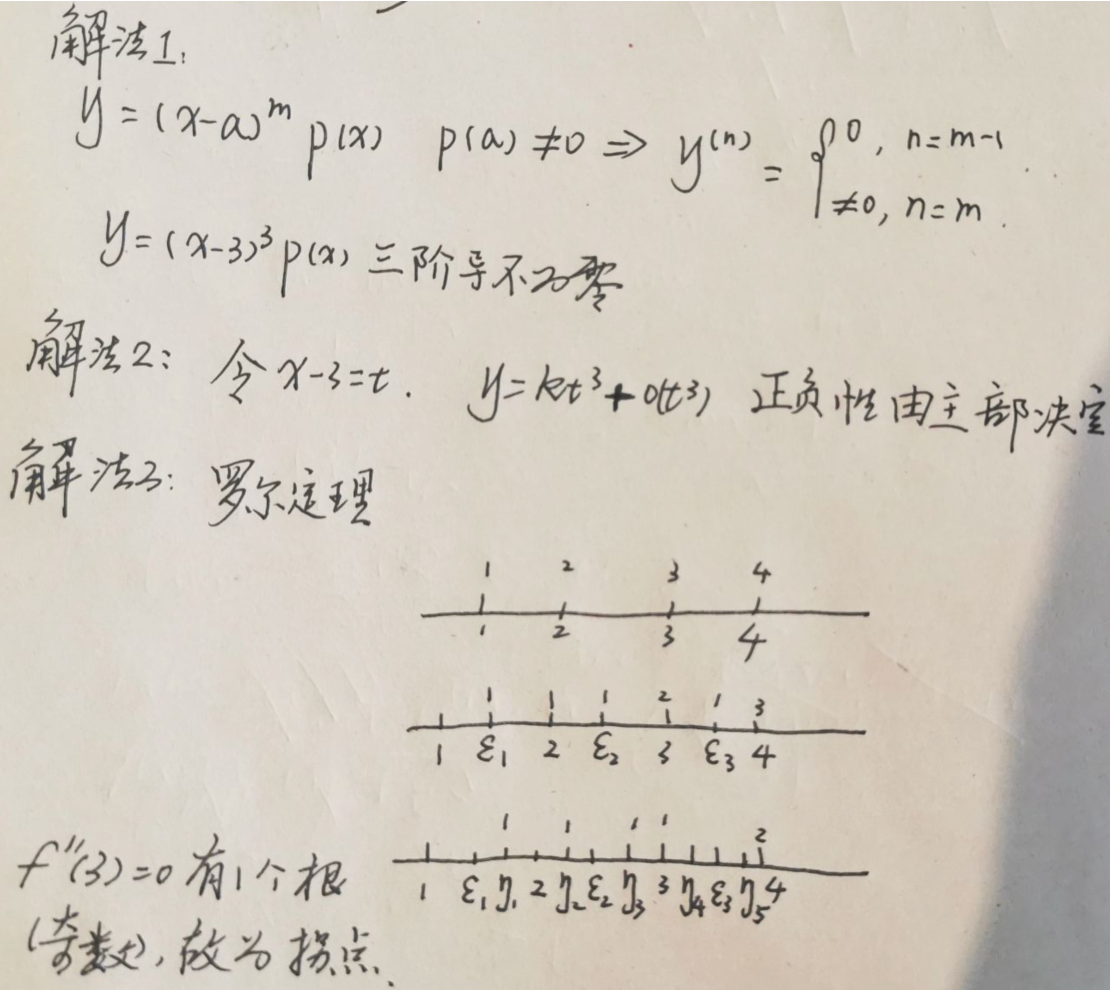 解法1:
y=(x-a)^m p(x) p(a)≠0 ⇒ y^(n) = { 0, n=m-1
≠0, n=m.
y=(x-3)³p(x) 三阶导不为零
解法2: 令x-3=t. y=kt³+o(t³) 正负性由主部决定
解法3: 罗尔定理
1 2 3 4
1 2 3 4
1 1 1 2 1 3
1 ε₁ 2 ε₂ 3 ε₃ 4
1 1 1 1 2
1 ε₁ η₁ 2 η₂ ε₂ η₃ 3 η₄ ε₃ η₅ 4
f''(3)=0有1个根
(奇数),故为拐点.